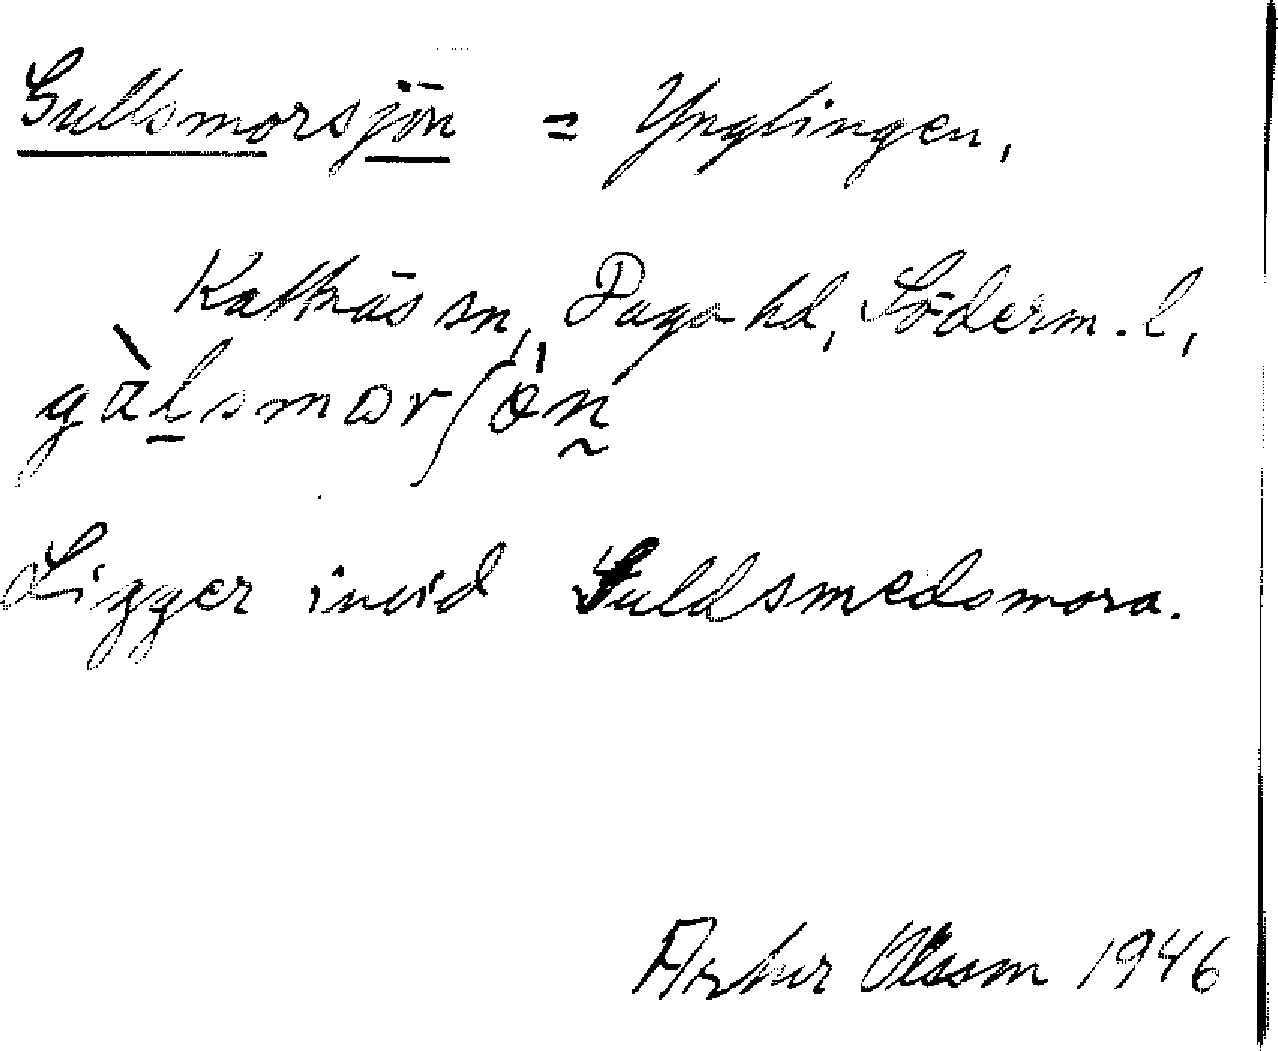 Gullsmorsjön = Ynglingen,
Kattnäs sn, Daga hd, Söderm. l,
gålsmorſön
Ligger invid Guldsmedsmora.
Arthur Olsson 1946